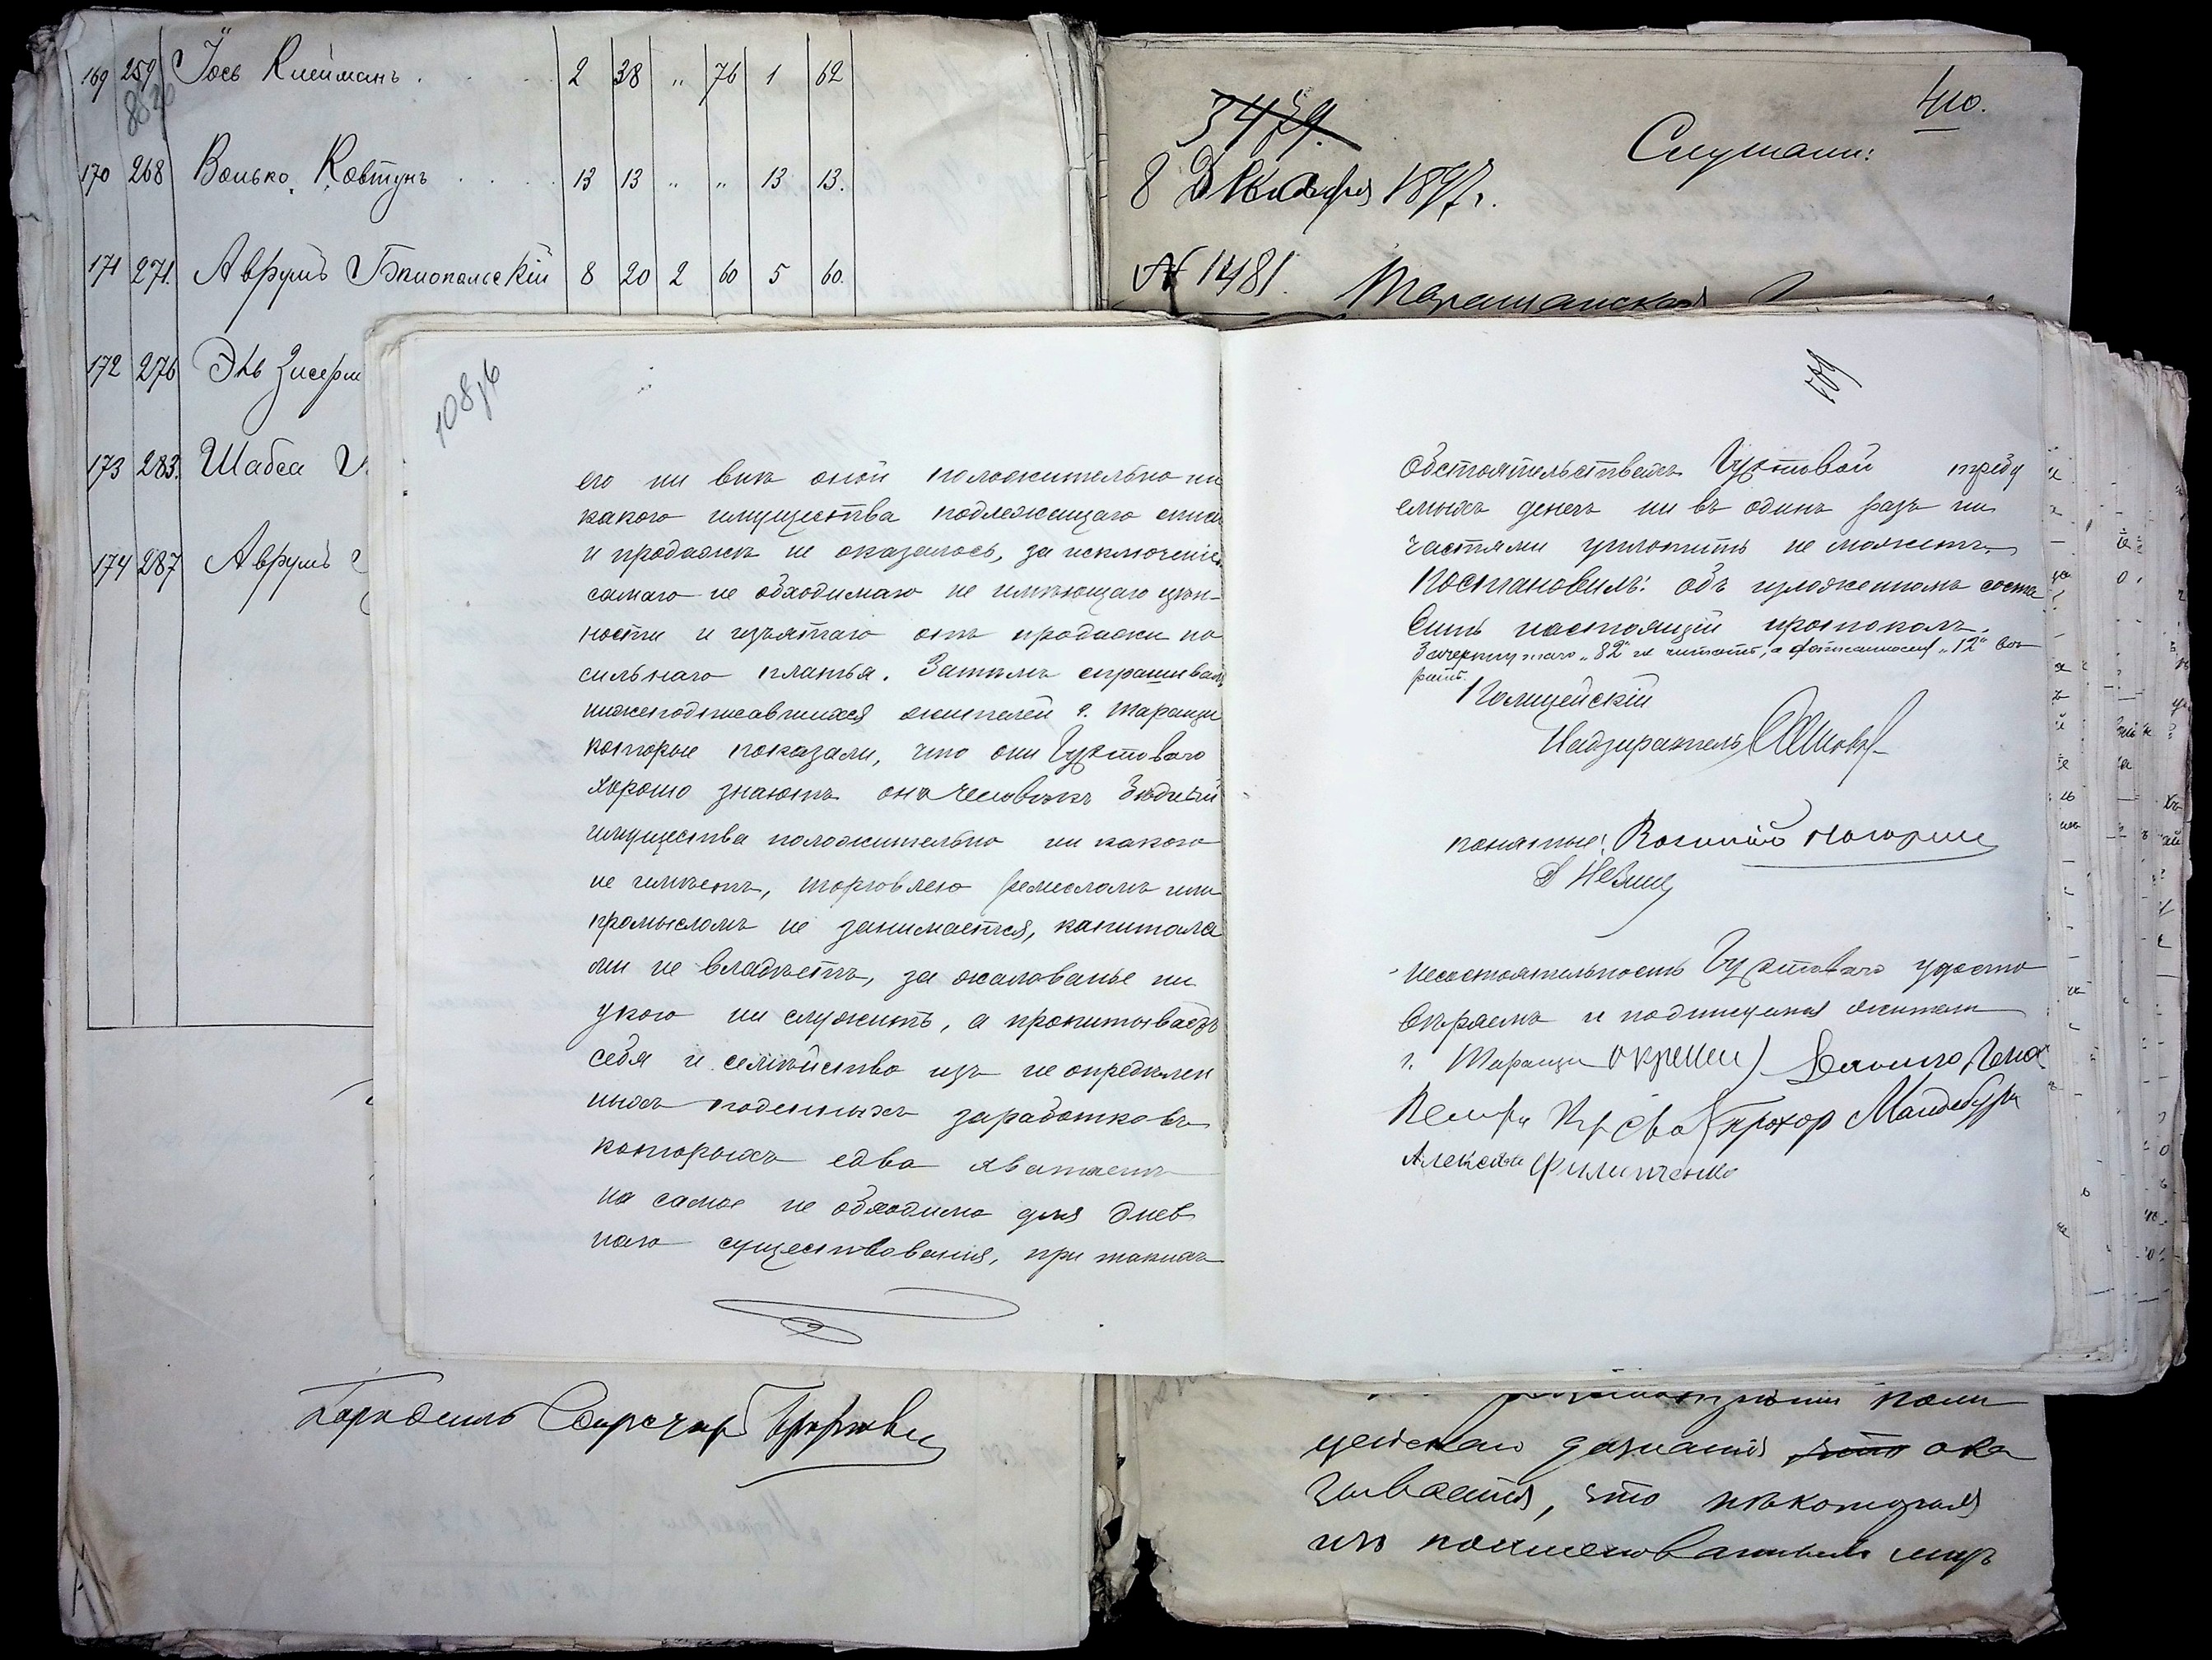 169 259 Іось Клейманъ . . . 2 38 " 76 1 62
170 268 Волько Ковтунъ . . . 13 13 " " 13 13.
171 271. Аврумъ Бялопольскій 8 20 2 60 5 60.
172 276
173 283. Шабса
174 287 Аврумъ
410.
3479.
Слушали:
8 Декабря 1897 г.
№ 1481.
Таращанская
108
его ни внѣ оной положительно ни
какого имущества подлежащаго описи
и продажѣ не оказалось, за исключеніем
самаго не обходимаго не имѣющаго цѣн-
ности и изъятаго отъ продажи но
сильнаго платья. Затѣмъ спрашивалъ
нижеподписавшихся жителей г. Таращи
которые показали, что они
хорошо знаютъ онъ человѣкъ бѣдный
имущества положительно ни какого
не имѣетъ, торговлею ремесломъ или
промысломъ не занимается, капитала
ми не владѣетъ, за жалованье ни
укого ни служитъ, а пропитываетъ
себя и семейство изъ не опредѣлен
ныхъ поденныхъ заработковъ
которыхъ едва хватаетъ
на самое не обходимо для днев
наго существования, при такихъ
109
обстоятельствахъ требу
емыхъ денегъ ни въ одинъ разъ ни
частями уплотить не можетъ
Постановилъ: объ изложенномъ соста
вить настоящій протоколъ.
Зачеркнутаго „82" не читать, а „12" вѣ
рить.
Полицейскій
Надзиратель
понятые:
несостоятельность удосто
вѣряемъ и подпищемся жители
г. Таращи
Прохор
Алексѣй Филипченко
поли
цейскаго дознанія что ока
зывается, что нѣкоторыя
изъ поименованныхъ лицъ